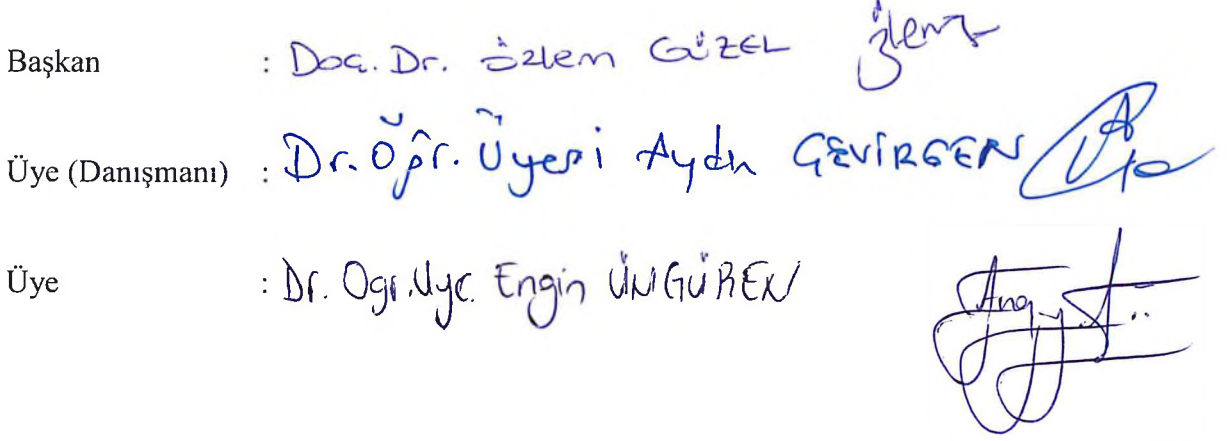 Başkan : Doç. Dr. Özlem GÜZEL özlem
Üye (Danışmanı) : Dr. Öğr. Üyesi Aydın ÇEVİRGEN
Üye : Dr. Ogr. Uye. Engin ÜNGÜREN